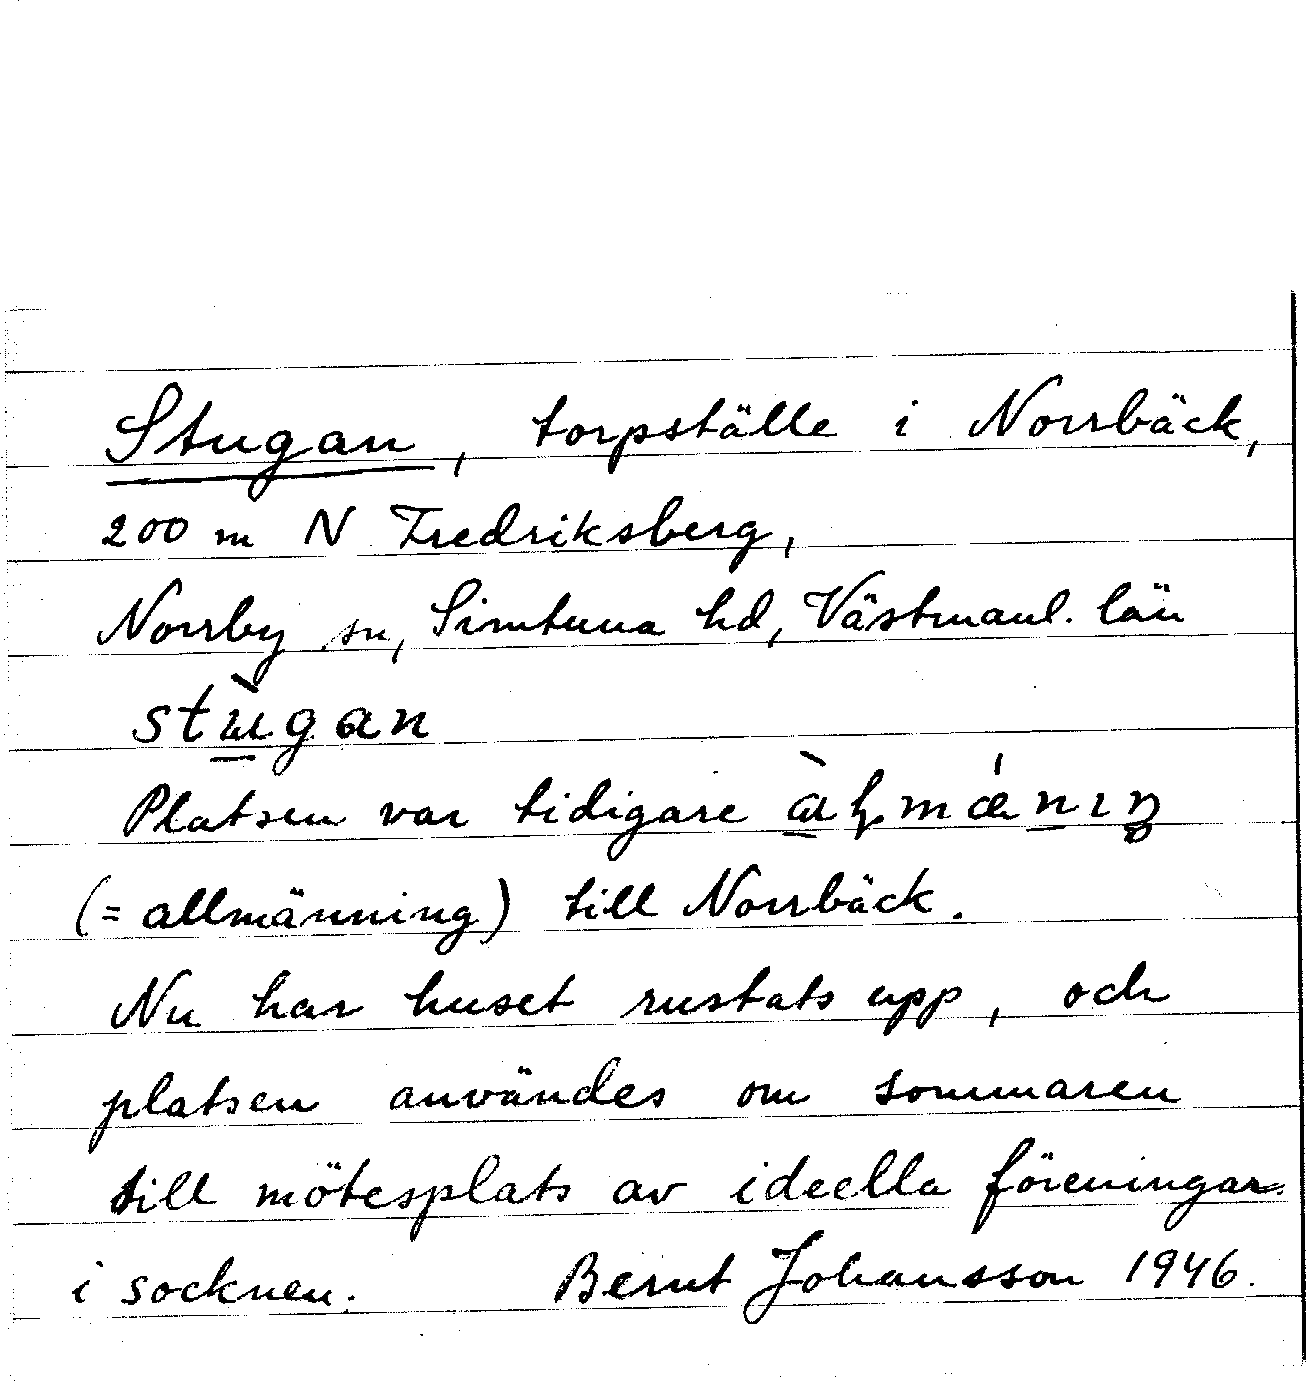 Stugan, torpställe i Norrbäck,
200 m N Fredriksberg,
Norrby sn, Simtuna hd, Västmanl. län
stùgan
Platsen var tidigare
(= allmänning) till Norrbäck.
Nu har huset rustats upp, och
platsen användes om sommaren
till mötesplats av ideella föreningar
i socknen. Bernt Johansson 1946.